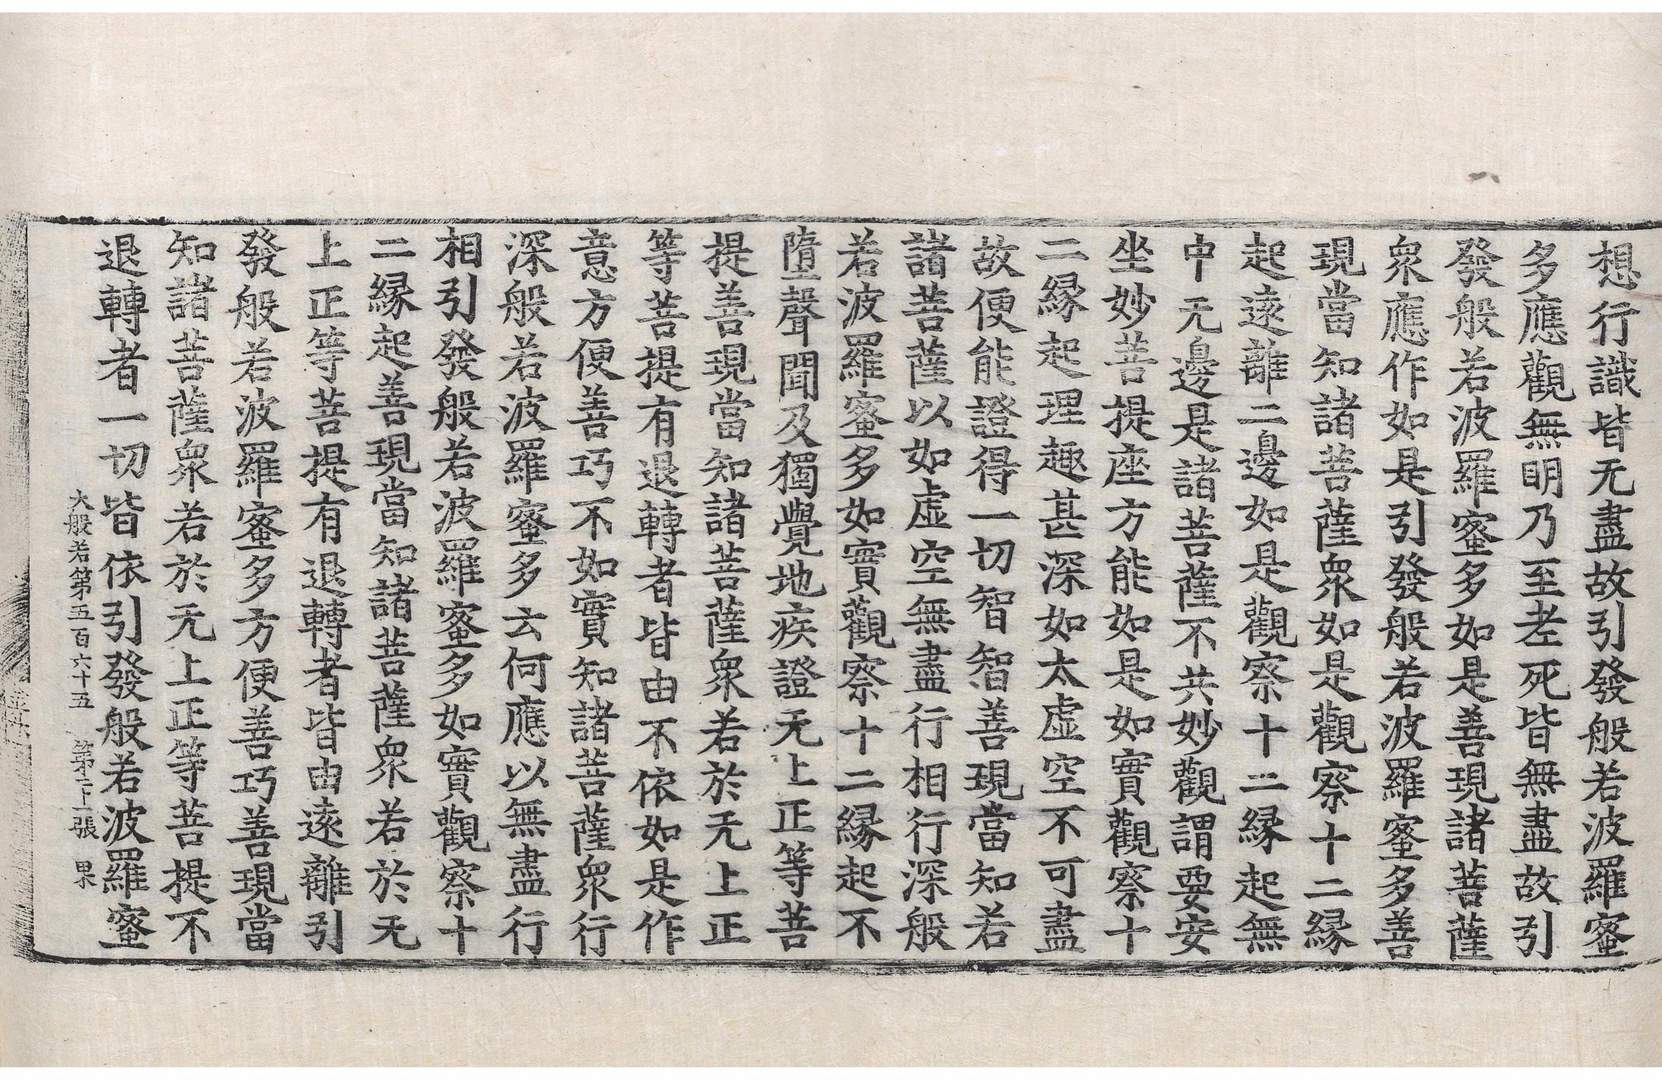 想行識皆无盡故引發般若波羅蜜
多應觀無明乃至老死皆無盡故引
發般若波羅蜜多如是善現諸菩薩
衆應作如是引發般若波羅蜜多善
現當知諸菩薩衆如是觀察十二緣
起遠離二邊如是觀察十二緣起無
中无邊是諸菩薩不共妙觀謂要安
坐妙菩提座方能如是如實觀察十
二緣起理趣甚深如太虛空不可盡
故便能證得一切智智善現當知若
諸菩薩以如虛空無盡行相行深般
若波羅蜜多如實觀察十二緣起不
墮聲聞及獨覺地疾證无上正等菩
提善現當知諸菩薩衆若於无上正
等菩提有退轉者皆由不依如是作
意方便善巧不如實知諸菩薩衆行
深般若波羅蜜多云何應以無盡行
相引發般若波羅蜜多如實觀察十
二緣起善現當知諸菩薩衆若於无
上正等菩提有退轉者皆由遠離引
發般若波羅蜜多方便善巧善現當
知諸菩薩衆若於无上正等菩提不
退轉者一切皆依引發般若波羅蜜
大般若第五百六十五 第二十一張 果